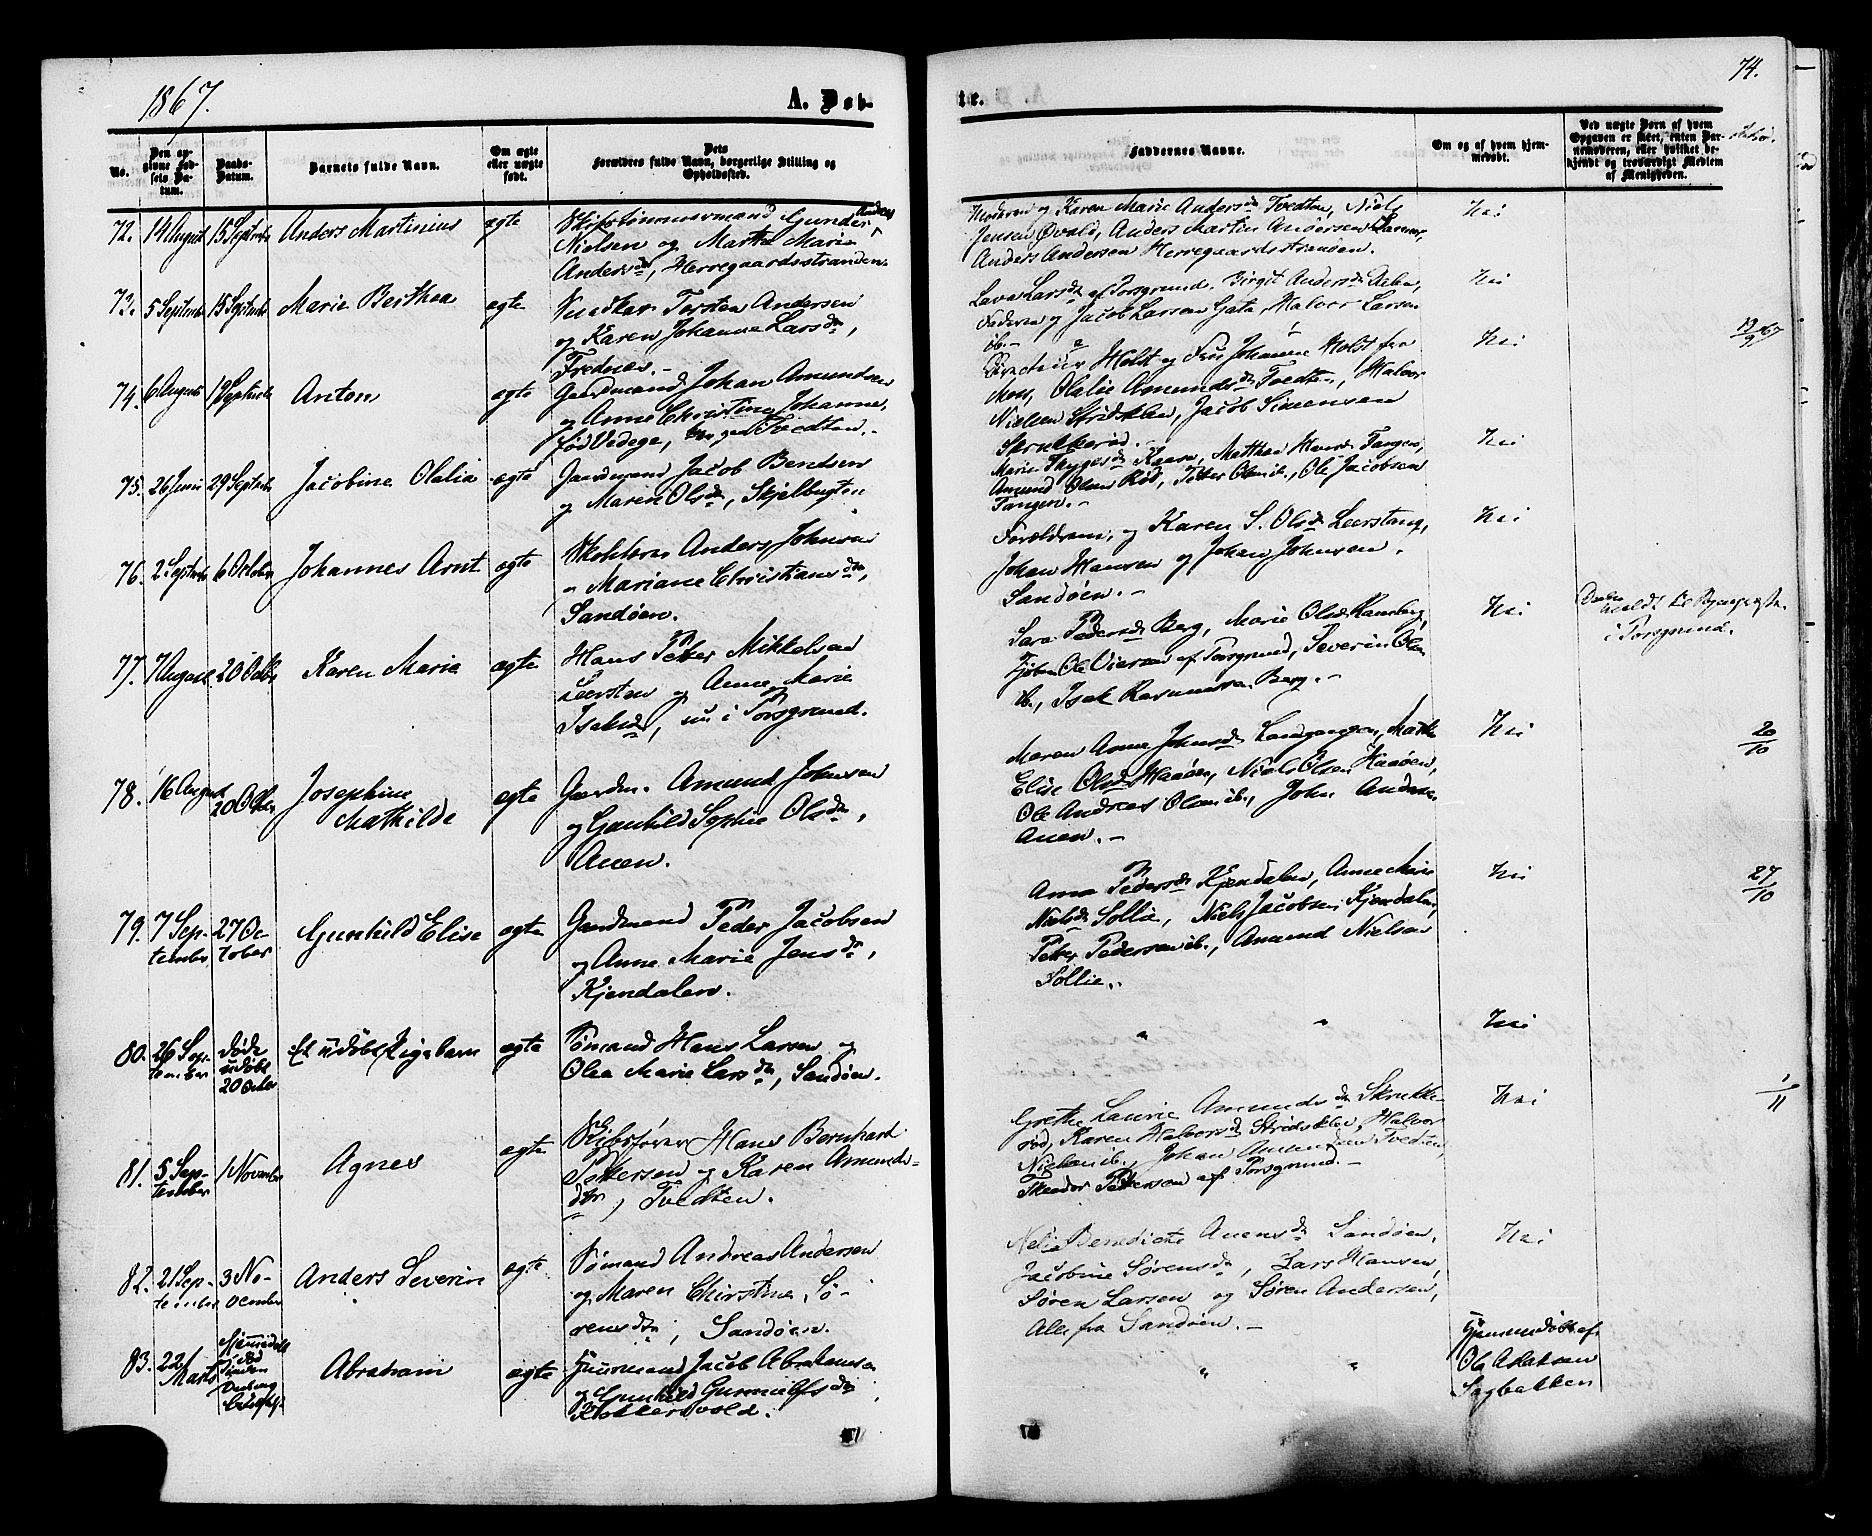 1867.
A. Døb-
te.
74.
No.
Den angivne Fødsels Datum.
Daabs-Datum.
Barnets fulde Navn.
Om ægte eller uægte født.
Dets Forældres fulde Navn, borgerlige Stilling og Opholdssted.
Faddernes Navne.
Om og af hvem hjemmedøbt.
Ved uægte Børn af hvem Opgaven er skeet, enten Barnemoderen, eller hvilket bekjendt og troværdigt Medlem af Menigheden.
72. 14 August 15 Septembr Anders Martinius ægte
Skibstømmermand Gunder Andreas
Nielsen og Marthe Marie
Andersdr, Herregaardsstranden.
Moderen og Karen Marie Andersdr Tvedten, Niels
Jensen Øvald, Anders Martin Andersen
Anders Andersen Herregaardsstranden.
Nei
73. 5 Septembr 15 Septembr Marie Berthea ægte
Torsten Andersen
og Karen Johanne Larsdr,
Frednæs.-
Larsdr af Porsgrund, Birgit Andersdr
Faderen og Jacob Larsen Gata, Halvor Larsen
ib.-
Nei
74. 6 August 12 Septembr Anton ægte
Gaardmand Johan Amundsen
og Anne Christine Johanne,
fød Vedege, Tvedten.-
Holst og Frue Johanne Holst fra
Moss, Olalie Amundsdr Tvedten, Halvor
Nielsen Stridsklev, Jacob Simonsen
Skrukkerød.-
Nei
13/9 67
75. 26 Juni 29 Septembr Jacobine Olalia ægte
Gaardmand Jacob Bendsen
og Maren Olsdr, Skjelbugten
Maren Kaasa, Mathea Hansdr Tangen,
Amund Olsen Rød, Peter Olsen ib., Ole Jacobsen
Tangen.-
Nei
76. 2 Septembr 6 October Johannes Arnt ægte
Skolelærer Anders Johnsen
" Mariane Christiansdr,
Sandøen.
Forældrene, og Karen S. Olsdr Leerstang,
Johan Hansen og Johan Johnsen.
Sandøen.-
Nei
77. 7 August 20 Octbr Karen Maria ægte
Hans Peter Mikkelsen
Leersten og Anne Marie
Isaksdr, nu i Porsgrund.
Sara Pedersdr Berg, Marie Olsdr
Ole af Porsgrund, Severin Olsen
ib., Isak Rasmussen Berg.-
Nei
i Porsgrund.
78. 16 August 20 Octbr Josephine
Mathilde ægte
Gaardm. Amund Johnsen
og Gunhild Sophie Olsdr,
Auen.
Maren Anne Johnsdr Langangen, Marthe
Elise Olsdr Haaøen, Niels Olsen Haaøen,
Ole Andreas Olsen ib., John Anders
Auen.-
Nei
20/10
79. 7 Sep-
tember 27 Oc-
tober Gunhild Elise ægte
Gaardmand Peder Jacobsen
og Anne Marie Jensdr,
Kjendalen.
Anne Pedersdr Kjendalen, Anne Marie
Nielsdr Sollie, Niels Jacobsen Kjendalen,
Peter Pedersen ib., Amund Nielsen
Sollie.
Nei
27/10
80. 26 Sep-
tember døde
udøbt
20 Octbr Et udøbt Pigebarn ægte
Sømand Hans Larsen og
Olea Marie Larsdr, Sandøen.
" "
Nei
81. 5 Sep-
tember 1 November Agnes ægte
Skibsfører Hans Bernhard
Pettersen og Karen Amunds-
dtr, Tvedten.
Grethe Laurie Amundsdr Skrukke-
rød, Karen Halvorsdr Stridsklev, Halvor
Nielsen ib., Johan Amundsen Tvedten,
Theodor Pettersen af Porsgrund.-
Nei
1/11
82. 21 Sep-
tember 3 No-
vember Anders Severin ægte
Sømand Andreas Andersen
og Maren Christine Sø-
rensdtr, Sandøen.
Nelia Benedicte Auensdr Sandøen,
Jacobine Sørensdr, Lars Hansen,
Søren Larsen og Søren Andersen,
Alle fra Sandøen.-
Nei
83. 22 Marts Hjemmedøbt
Abraham ægte
Huusmand Jacob Abrahamsen
og Gunhild Gunnulfsdr,
Klokkersvold.
" "
Hjemmedøbt af
Ole Adaksen
Sagbakken